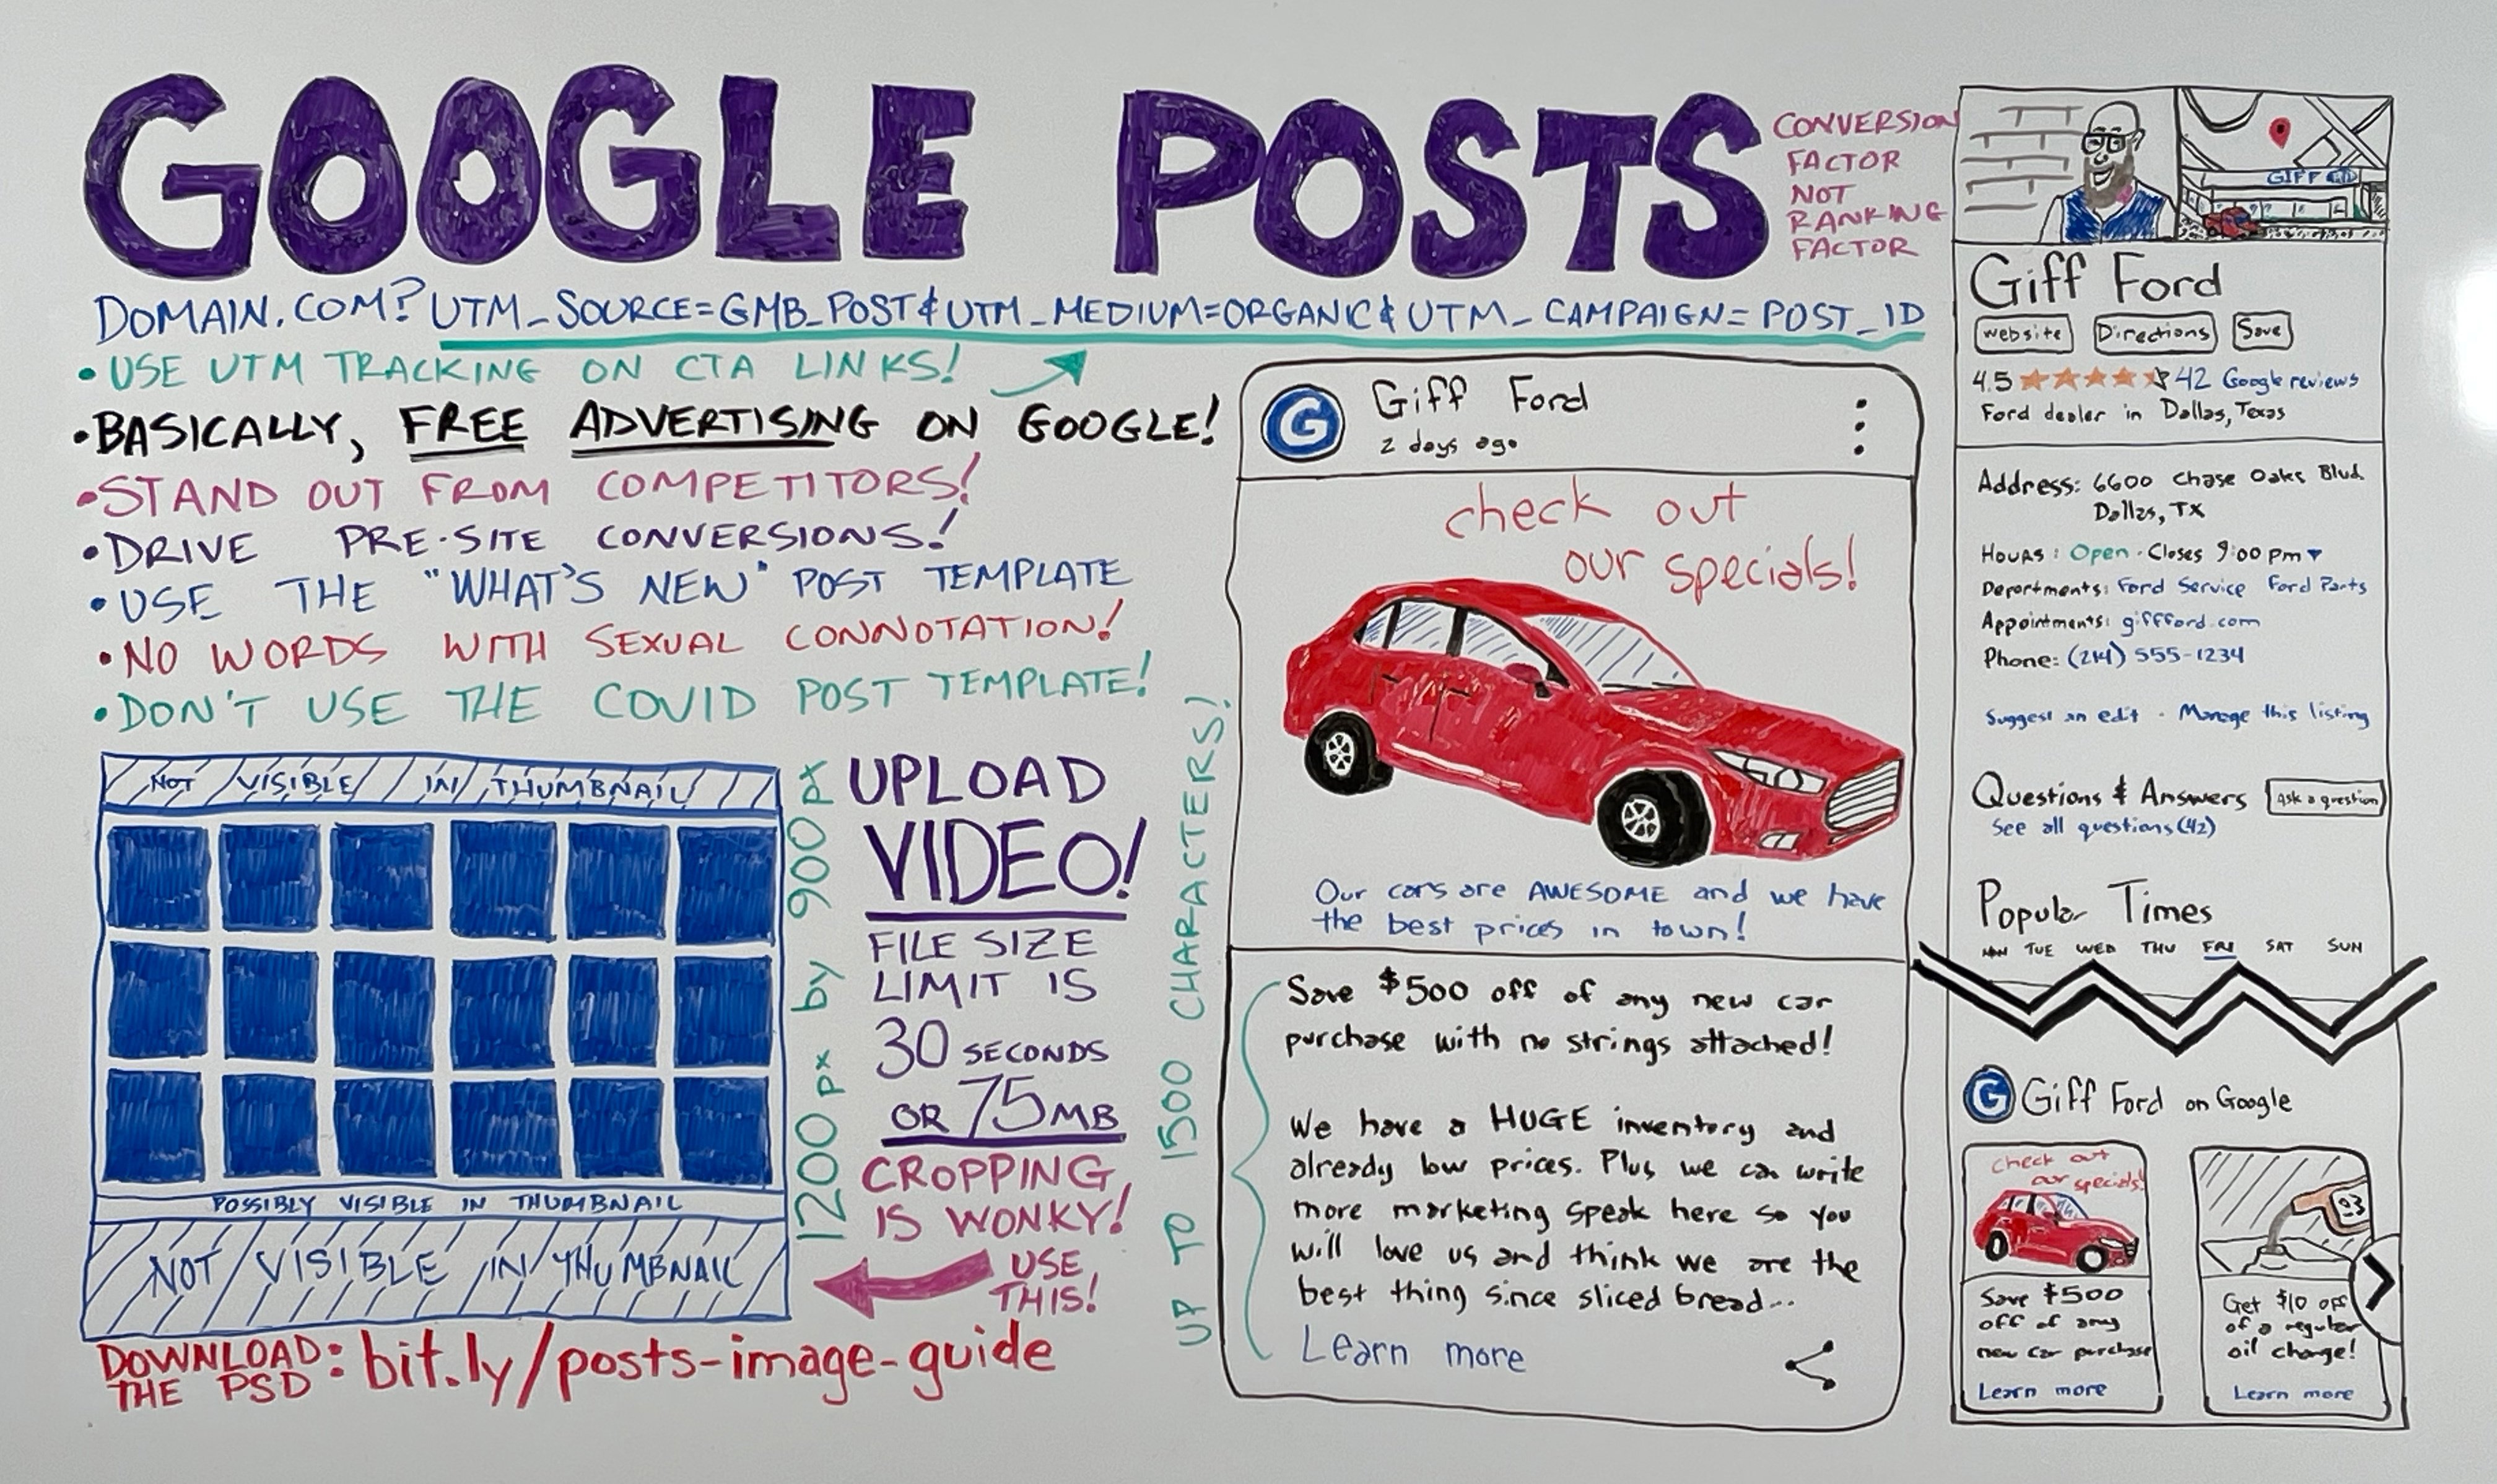 GOOGLE POSTS
CONVERSION
FACTOR
NOT
RANKING
FACTOR
DOMAIN.COM?UTM_SOURCE=GMB_POST&UTM_MEDIUM=ORGANIC&UTM_CAMPAIGN=POST_ID
•USE UTM TRACKING ON CTA LINKS!
•BASICALLY, FREE ADVERTISING ON GOOGLE!
•STAND OUT FROM COMPETITORS!
•DRIVE PRE-SITE CONVERSIONS!
•USE THE "WHAT'S NEW" POST TEMPLATE
•NO WORDS WITH SEXUAL CONNOTATION!
•DON'T USE THE COVID POST TEMPLATE!
NOT VISIBLE IN THUMBNAIL
POSSIBLY VISIBLE IN THUMBNAIL
NOT VISIBLE IN THUMBNAIL
1200 px by 900 px
UPLOAD
VIDEO!
FILE SIZE
LIMIT IS
30 SECONDS
OR 75MB
CROPPING
IS WONKY!
USE
THIS!
DOWNLOAD
THE PSD: bit.ly/posts-image-guide
UP TO 1500 CHARACTERS!
G
Giff Ford
2 days ago
check out
our specials!
Our cars are AWESOME and we have
the best prices in town!
Save $500 off of any new car
purchase with no strings attached!
We have a HUGE inventory and
already low prices. Plus we can write
more marketing speak here so you
will love us and think we are the
best thing since sliced bread...
Learn more
GIFF
Giff Ford
Website Directions Save
4.5 42 Google reviews
Ford dealer in Dallas, Texas
Address: 6600 Chase Oaks Blvd
Dallas, TX
Hours: Open · Closes 9:00 pm
Departments: Ford Service Ford Parts
Appointments: giffford.com
Phone: (214) 555-1234
Suggest an edit · Manage this listing
Questions & Answers Ask a question
See all questions (42)
Popular Times
MON TUE WED THU FRI SAT SUN
G Giff Ford on Google
check out
our specials!
Save $500
off of any
new car purchase
Learn more
Get $10 off
of a regular
oil change!
Learn more